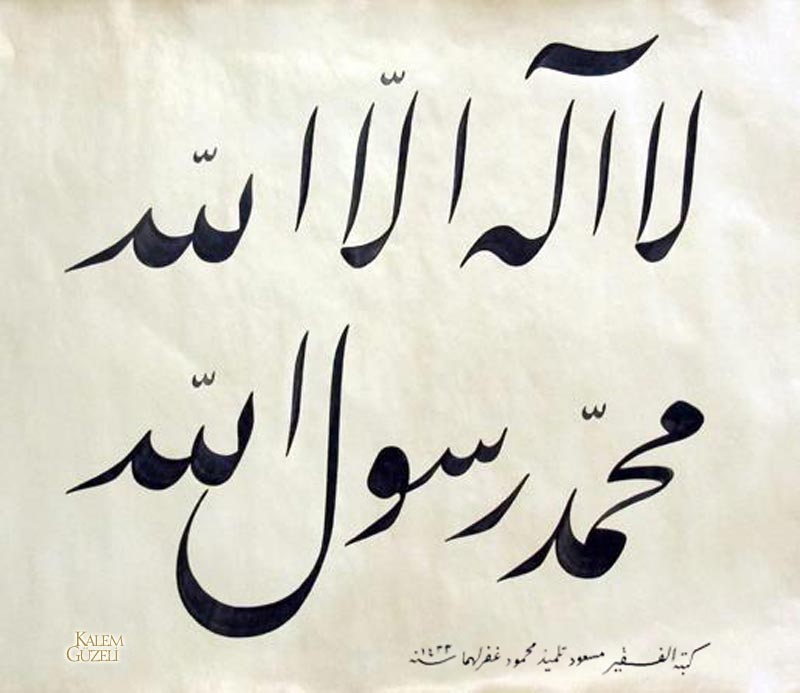 لا اله الّا اللّه
محمّد رسول اللّه
كتبه الفقير مسعود تلميذ محمود غفرلهما سنه ١٤٣٣
KALEM
GÜZELİ